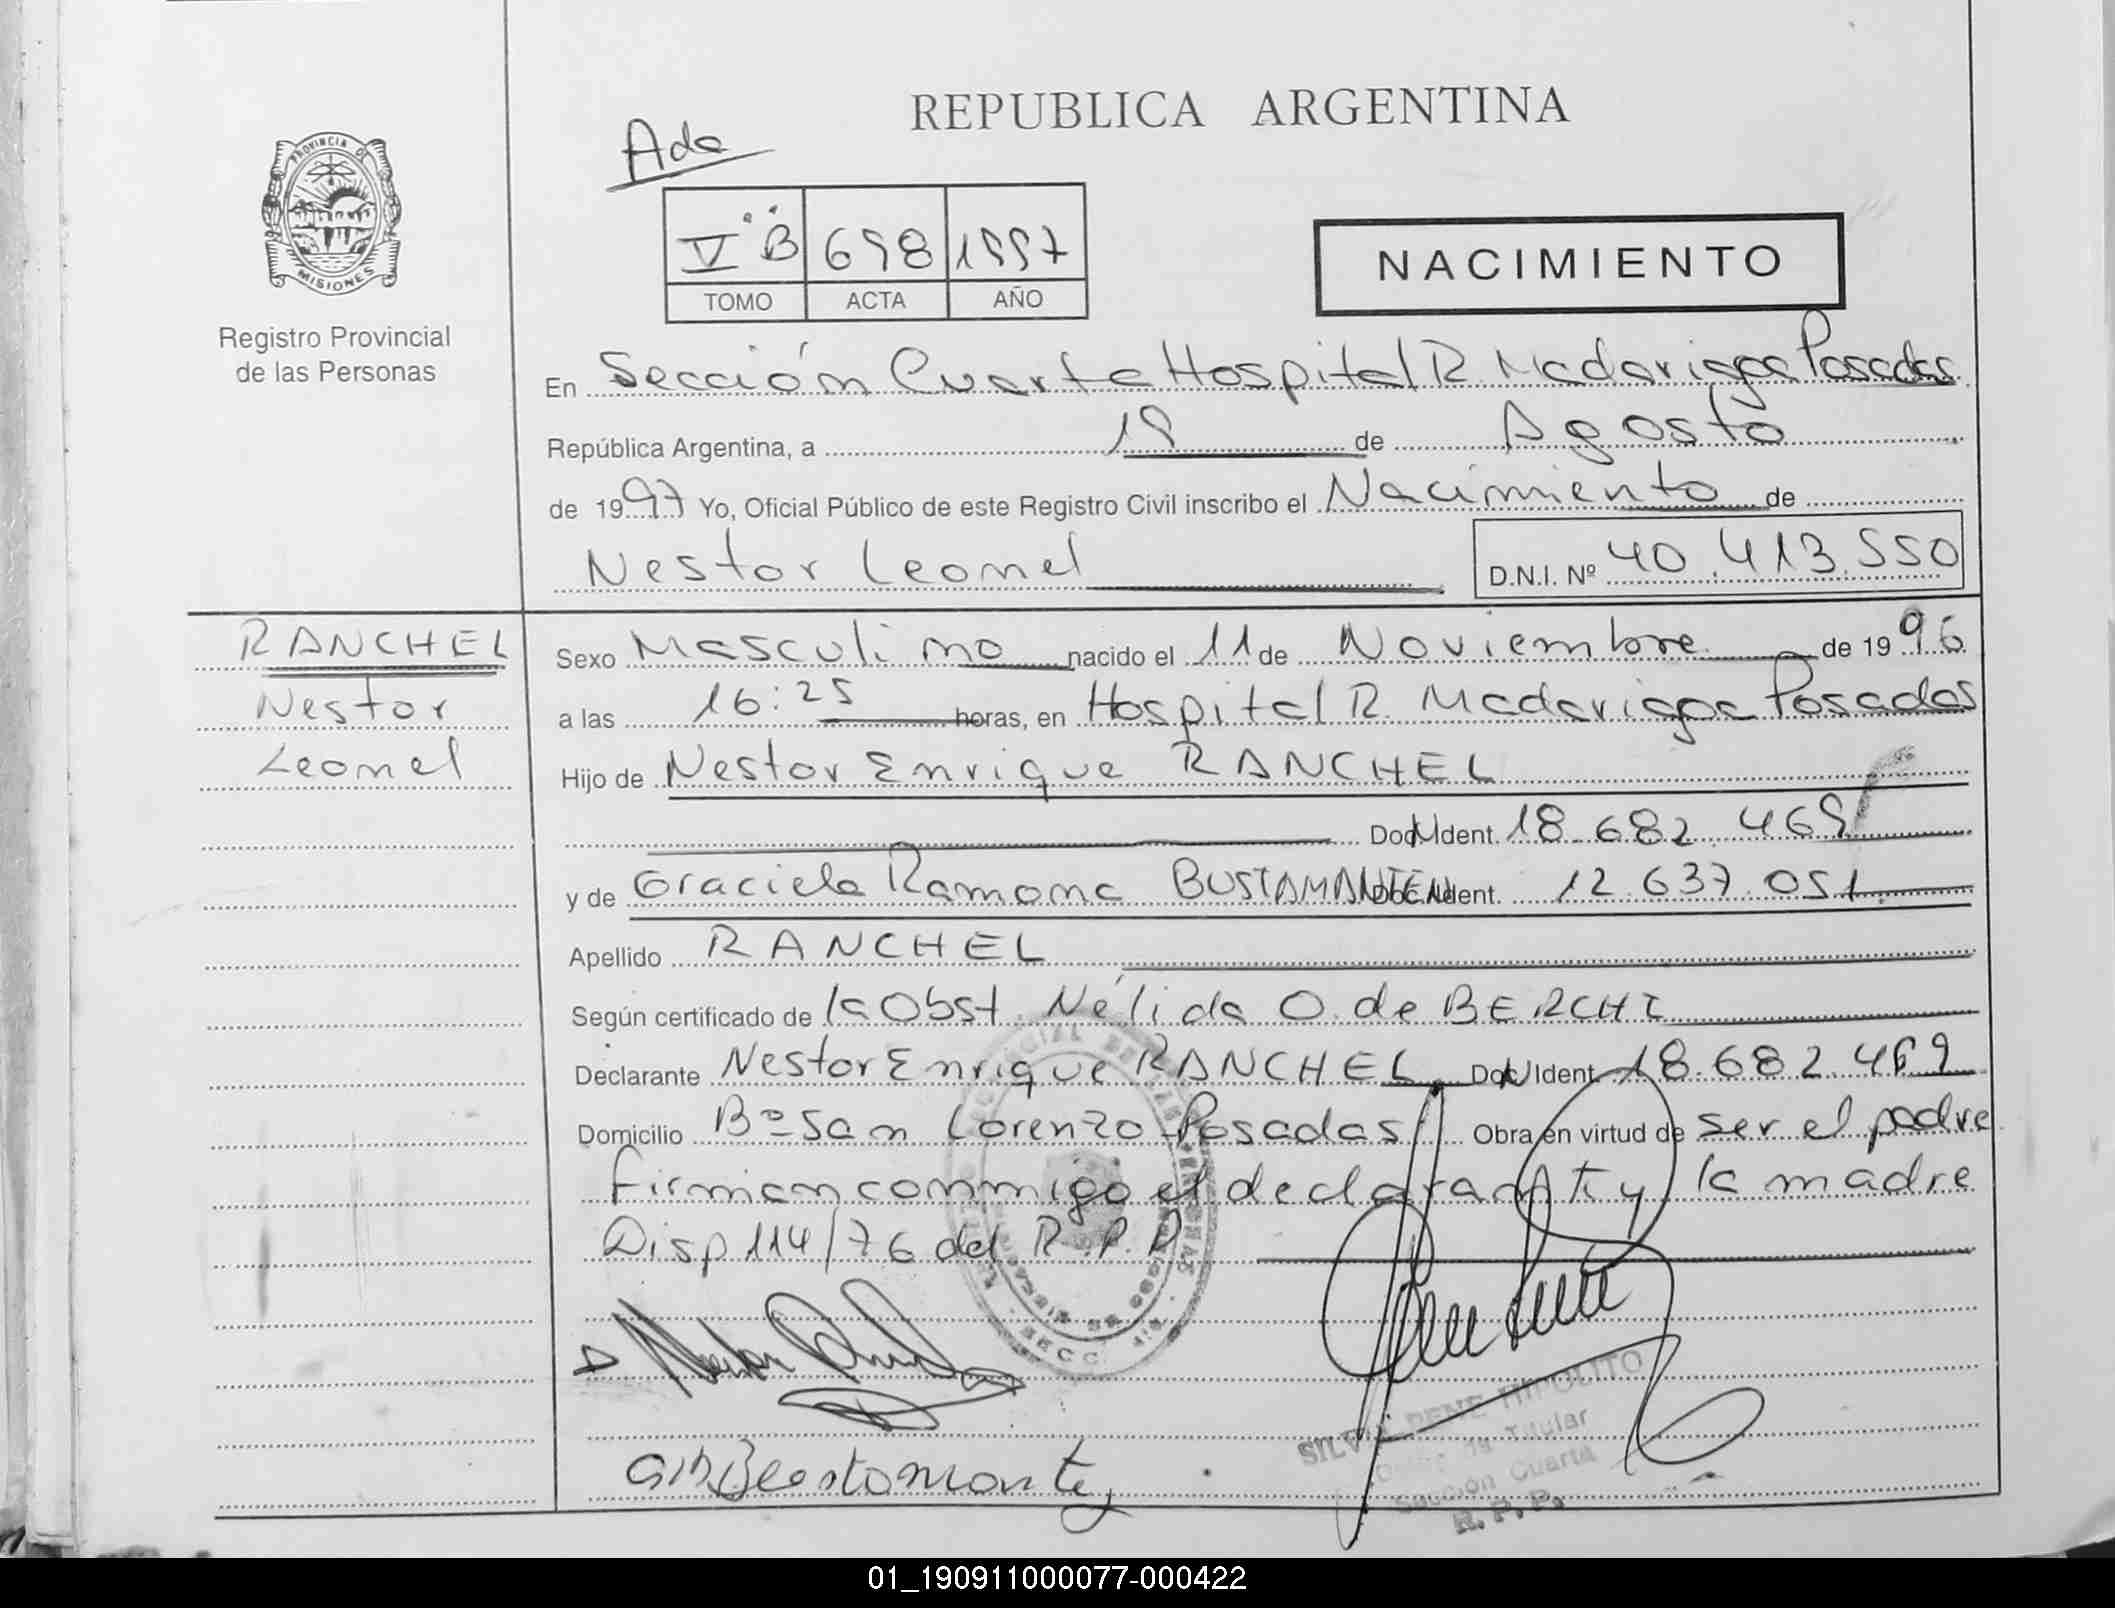 REPUBLICA ARGENTINA
Ada
PROVINCIA DE
MISIONES
Registro Provincial
de las Personas
V B 698 1997
TOMO ACTA AÑO
NACIMIENTO
En Sección Cuarta Hospital R. Madariaga Posadas
República Argentina, a 19 de Agosto
de 1997 Yo, Oficial Público de este Registro Civil inscribo el Nacimiento de
Nestor Leonel D.N.I. Nº 40.413.550
RANCHEL
Nestor
Leonel
Sexo Masculino nacido el 11 de Noviembre de 1996
a las 16:25 horas, en Hospital R. Madariaga Posadas
Hijo de Nestor Enrique RANCHEL
Doc. Ident. 18.682.469
y de Graciela Ramona BUSTAMANTE Doc. Ident. 12.637.051
Apellido RANCHEL
Según certificado de la Obst. Nélida O. de BERCHI
Declarante Nestor Enrique RANCHEL Doc. Ident. 18.682.469
Domicilio Bº San Lorenzo Posadas Obra en virtud de ser el padre
firman conmigo el declarante y la madre
Disp 114/76 del R.P.P.
RENE HIPOLITO
Titular
Sección Cuarta
R.P.P.
01_190911000077-000422